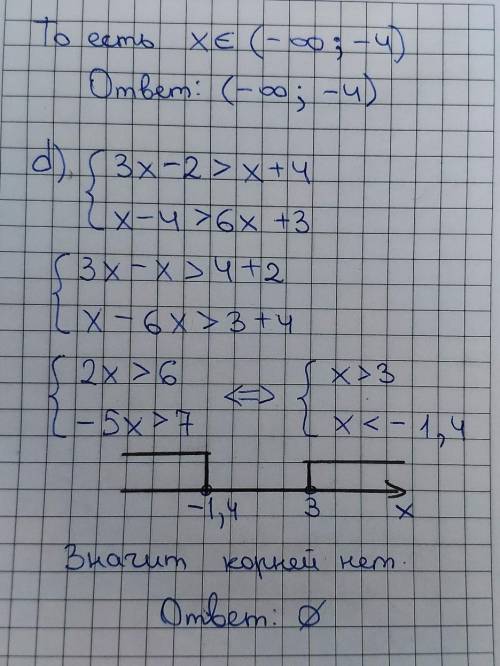 То есть x ∈ (-∞; -4)
Ответ: (-∞; -4)
d) { 3x-2 > x+4
x-4 > 6x+3
{ 3x-x > 4+2
x-6x > 3+4
{ 2x > 6 <=> { x > 3
-5x > 7 x < -1,4
-1,4 3 x
Значит корней нет.
Ответ: ∅